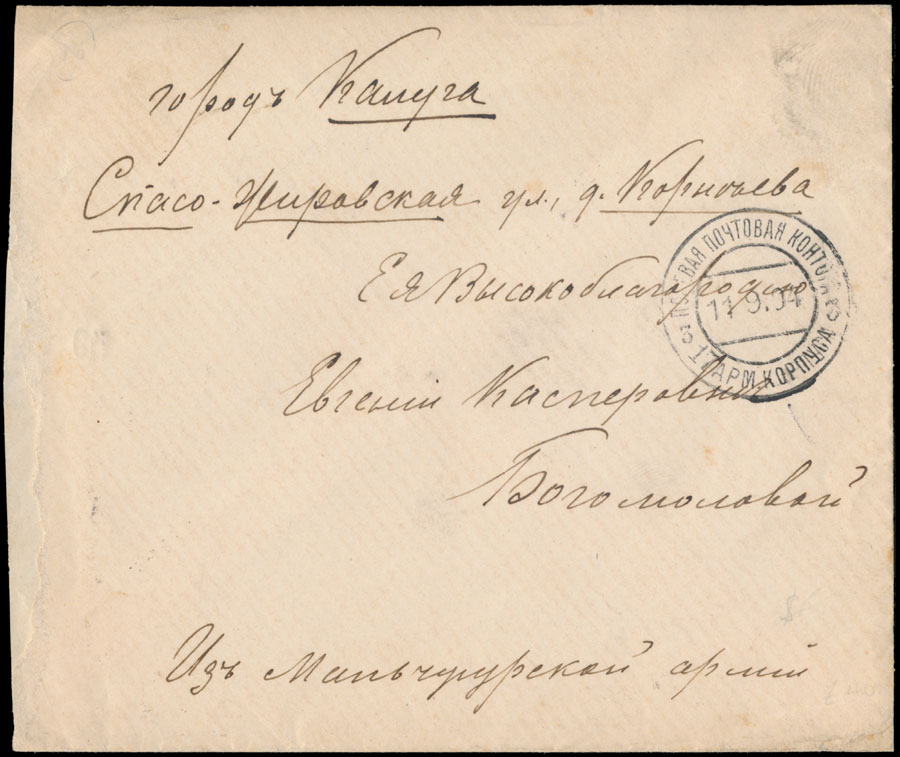 городъ Калуга
Спасо-Жировская ул., д. Корноева
Ея Высокоблагородію
Евгеніи Касперовнѣ
Богомоловой
Изъ Маньчжурской арміи
ПОЛЕВАЯ ПОЧТОВАЯ КОНТОРА
11.9.04
17 АРМ. КОРПУСА